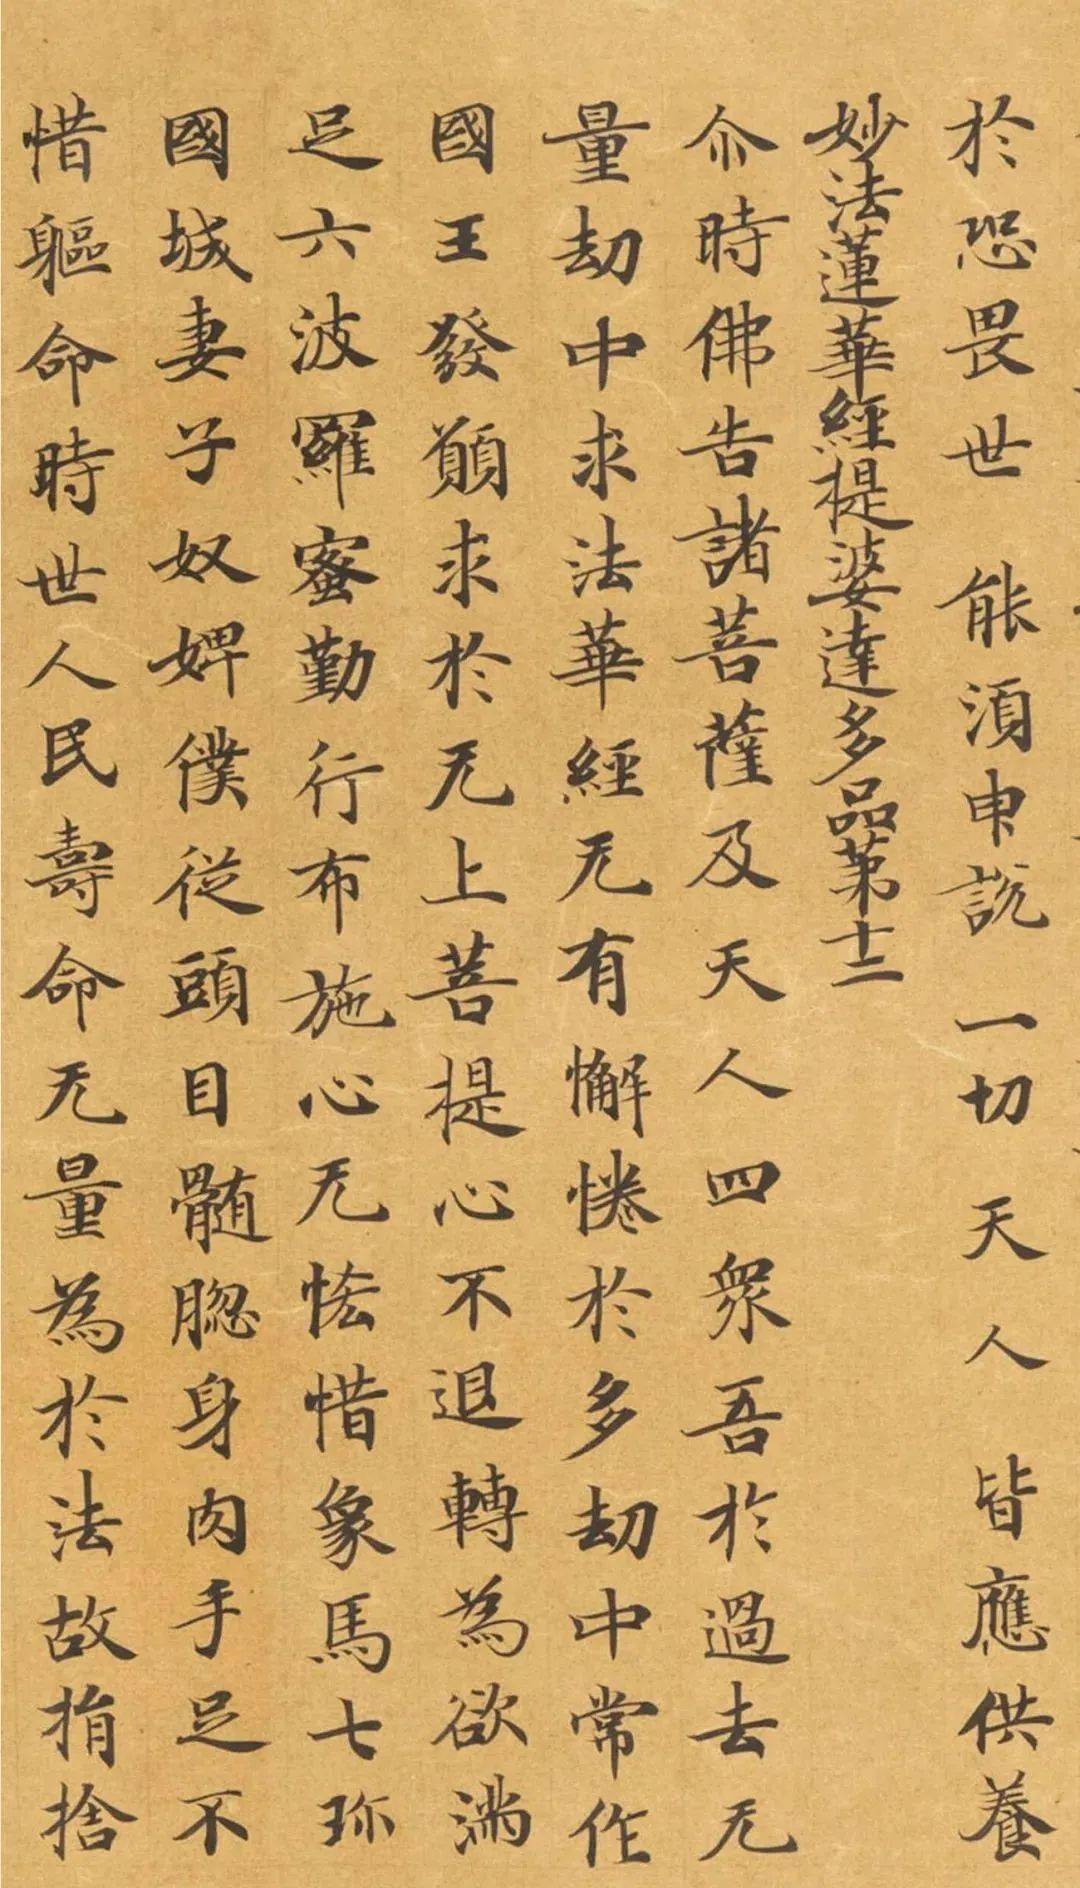 於恐畏世 能湏申說 一切天人 皆應供養
妙法蓮華經提婆達多品第十二
尒時佛告諸菩薩及天人四衆吾於過去无
量劫中求法華經无有懈惓於多劫中常作
國王發願求於无上菩提心不退轉為欲滿
足六波羅蜜勤行布施心无恡惜象馬七珎
國城妻子奴婢僕從頭目髓𦛁身肉手足不
惜軀命時世人民壽命无量為於法故捐捨